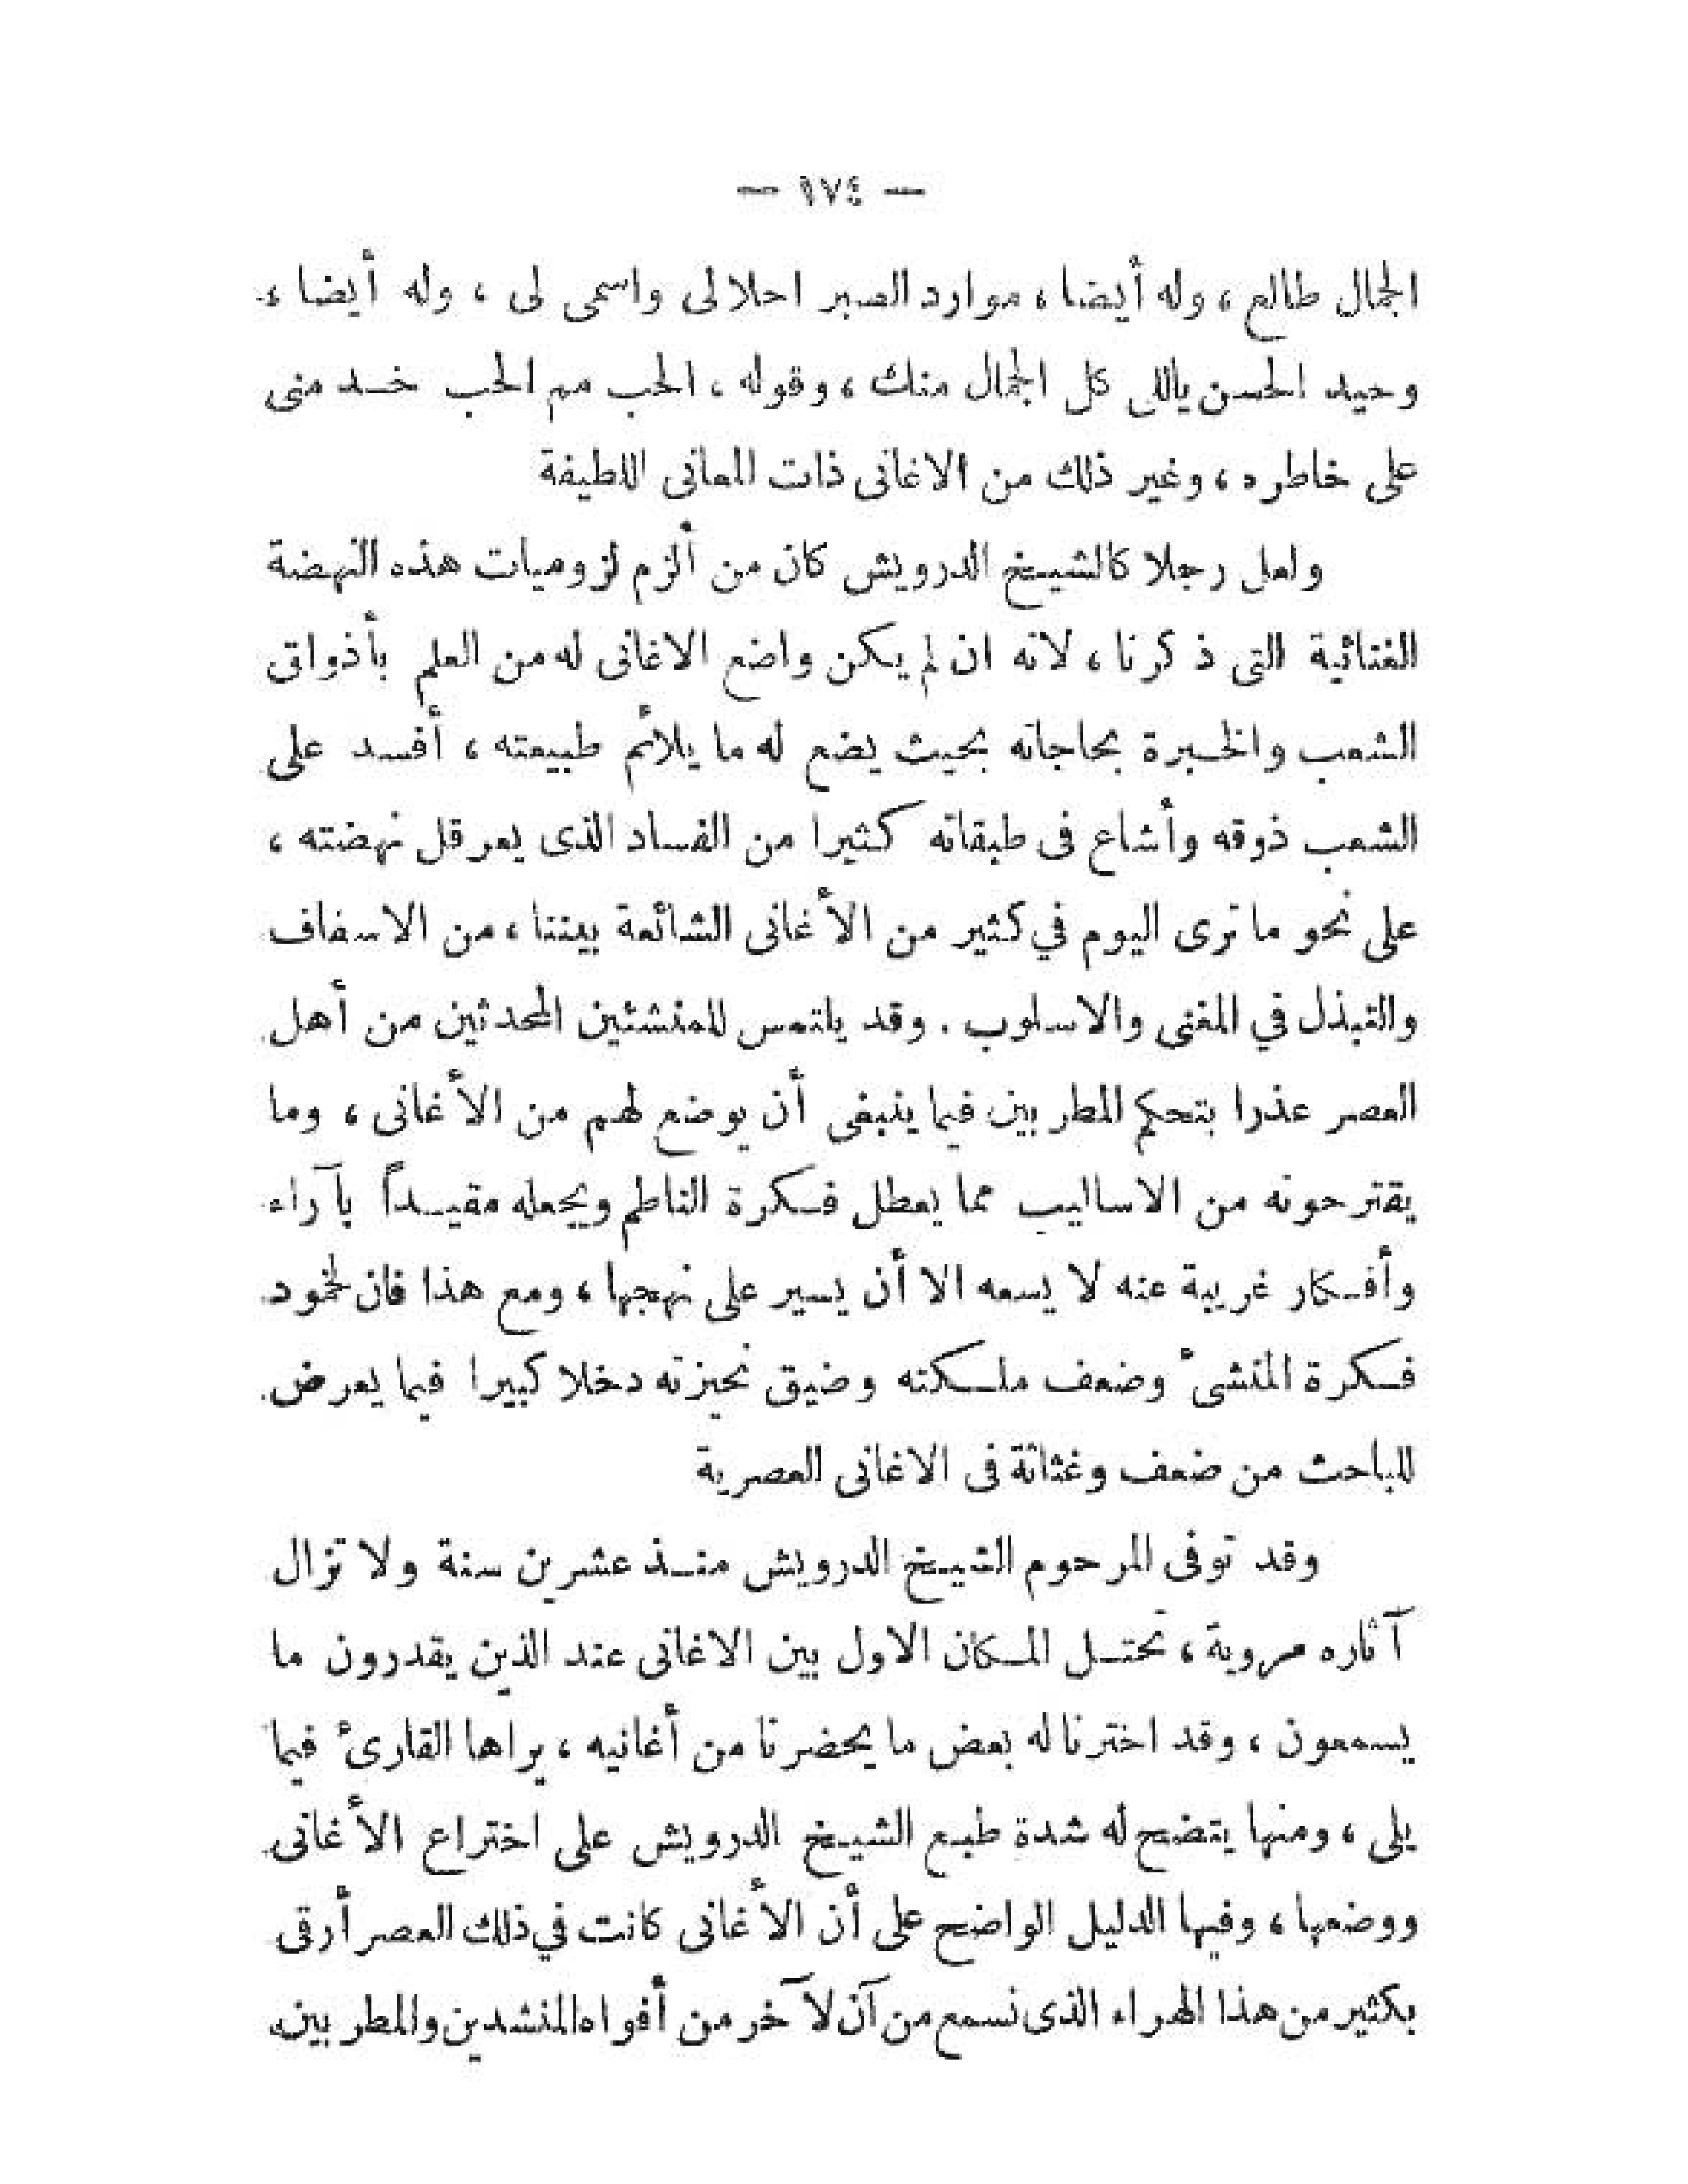 — ١٧٤ —
الجمال طالع ، وله أيضا ، موارد الصبر احلالى واسمى لى ، وله أيضا ،
وحيد الحسن ياللى كل الجمال منك ، وقوله ، الحب مم الحب خد منى
على خاطره ، وغير ذلك من الاغانى ذات المعانى اللطيفة
ولعل رجلا كالشيخ الدرويش كان من ألزم لزوميات هذه النهضة
الغنائية التى ذكرنا ، لانه ان لم يكن واضع الاغانى له من العلم بأذواق
الشعب والخبرة بحاجاته بحيث يضع له ما يلائم طبيعته ، أفسد على
الشعب ذوقه وأشاع فى طبقاته كثيرا من الفساد الذى يعرقل نهضته ،
على نحو ما ترى اليوم في كثير من الأغانى الشائعة بيننا ، من الاسفاف
والتبذل في المغنى والاسلوب . وقد يلتمس للمنشئين المحدثين من أهل
العصر عذرا بتحكم المطربين فيما ينبغى أن يوضع لهم من الأغانى ، وما
يقترحونه من الاساليب مما يعطل فكرة الناظم ويجعله مقيداً بآراء
وأفكار غريبة عنه لا يسعه الا أن يسير على نهجها ، ومع هذا فان لخمود
فكرة المنشئ وضعف ملكته وضيق نحيزته دخلا كبيرا فيما يعرض
للباحث من ضعف وغثاثة فى الاغانى العصرية
وقد توفى المرحوم الشيخ الدرويش منذ عشرين سنة ولا تزال
آثاره مروية ، تحتل المكان الاول بين الاغانى عند الذين يقدرون ما
يسمعون ، وقد اخترنا له بعض ما يحضرنا من أغانيه ، يراها القارئ فيما
يلى ، ومنها يتضح له شدة طبع الشيخ الدرويش على اختراع الأغانى
ووضعها ، وفيها الدليل الواضح على أن الأغانى كانت في ذلك العصر أرقى
بكثير من هذا الهراء الذى نسمع من آن لآخر من أفواه المنشدين والمطربين